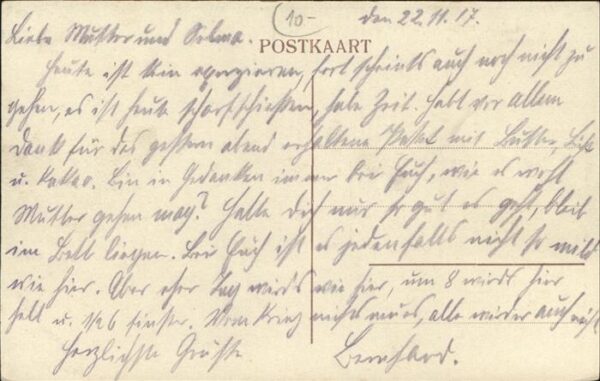 10-
den 22.11.17.
Liebe Mutter und Selma.
POSTKAART
Heute ist kein exerzieren, fort scheints auch noch nicht zu
gehen, es ist heute scharfschießen, habe Zeit. Habt vor allem
Dank für das gestern abend erhaltene Paket mit Butter,
u. Kakao. Bin in Gedanken immer bei Euch, wie es wohl
Mutter gehen mag? Halte Dich nur so gut es geht, bleib
im Bett liegen. Bei Euch ist es jedenfalls nicht so mild
wie hier. Aber eher Tag wirds wie hier, um 8 wirds hier
hell u. 1/2 6 finster. Vom Krieg nichts neues, alle auch nicht
Herzlichste Grüße
Bernhard.